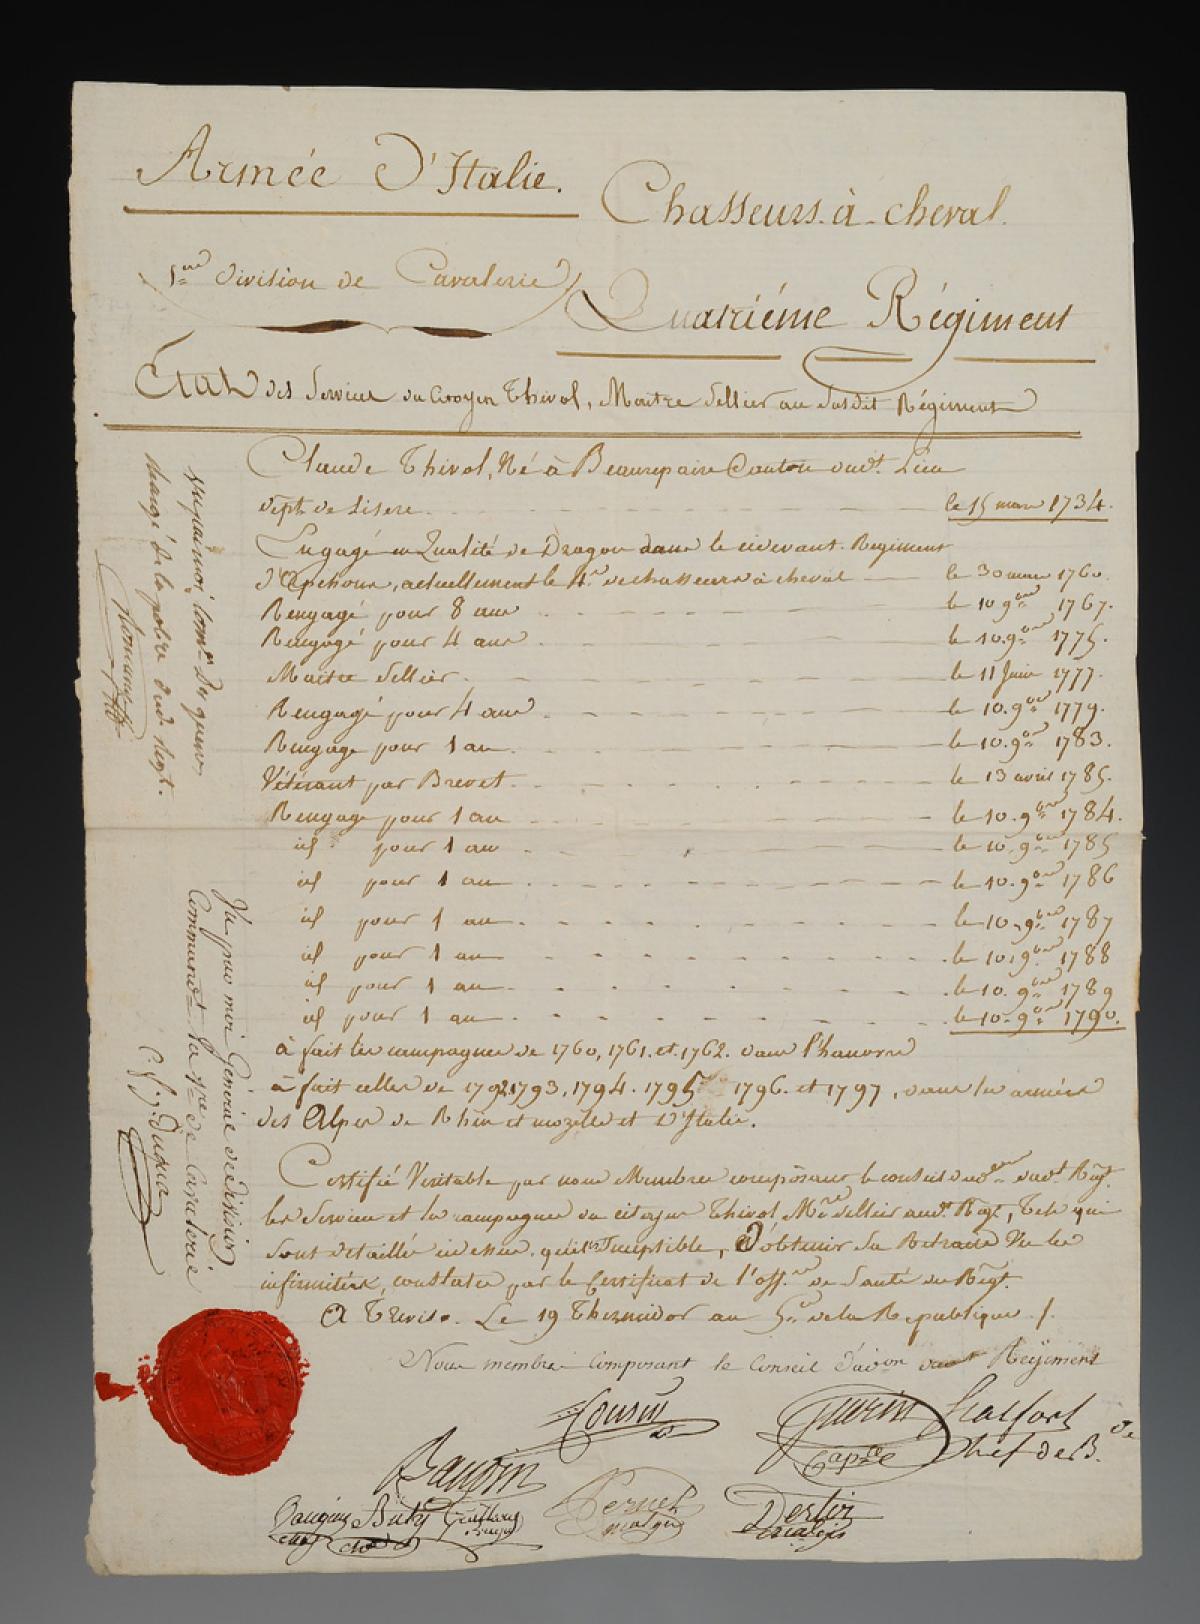 Armée D'Italie.
Chasseurs à cheval.
1ere Division de Cavalerie
Quatriéme Régiment
Etat des Services du Citoyen Thivol, Maitre Sellier au Susdit Régiment
Claude Thivol, Né à Beaurepaire Canton dudt. Lieu
dépt. de Lisere le 15 mars 1734.
Engagé en Qualité de Dragon dans le cidevant Regiment
d'Apchoux, actuellement le 4e. de chasseurs à cheval le 30 mars 1760.
Rengagé pour 8 ans le 10 9bre 1767.
Rengagé pour 4 ans le 10. 9bre 1775.
Maitre Sellier. le 11 Juin 1777.
Rengagé pour 4 ans le 10. 9bre 1779.
Rengage pour 1 an. le 10. 9bre 1783.
Vétérant par Brevet. le 13 avril 1785.
Rengage pour 1 an le 10. 9bre 1784.
id pour 1 an le 10. 9bre 1785
id pour 1 an le 10. 9bre 1786
id pour 1 an le 10. 9bre 1787
id pour 1 an le 10. 9bre 1788
id pour 1 an le 10. 9bre 1789
id pour 1 an le 10. 9bre 1790.
à fait les campagnes de 1760, 1761. et 1762. dans l'hanovre
à fait celles de 1792. 1793, 1794. 1795 1796. et 1797, dans les armées
des Alpes de Rhin et mozelle et d'Italie.
Certifié Veritable par nous Membres composant le conseil dudt. Regt.
les Services et les campagnes du citoyen Thivol Mtre Sellier audt. Regt, Tels qui
sont detaillé cidessus, qu'il Suseptible, D'obtenir Sa Retraite Vu les
infirmitées, constatée par le Certificat de l'offer. de Santé du Regt.
A Treviso. Le 19 Thermidor an 5e. de la Republique
Nous membres Composant le Conseil d'adon dudt Regiment
Cousin
Guerin Capne
Chef de B.de
Baudoin
Pernet
Vu par moi Comre. Des guerres
chargé de la police dudt Regt.
Vu par moi Général de division
Commandt la 1ere de Cavalerie
C. f. j. Dugua